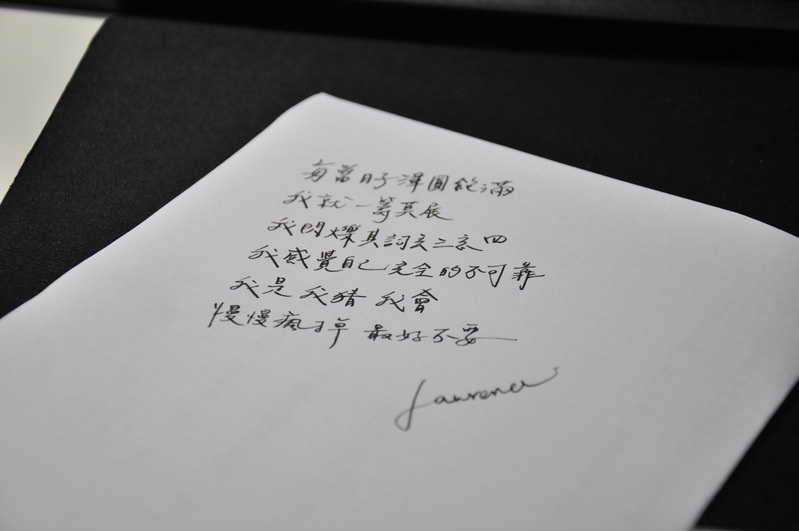 每當日子渾圓飽滿
我就一籌莫展
我閃爍其詞言三言四
我感覺自己完全的不可靠
我是我猜我會
慢慢瘋掉 最好不要
Lawrence